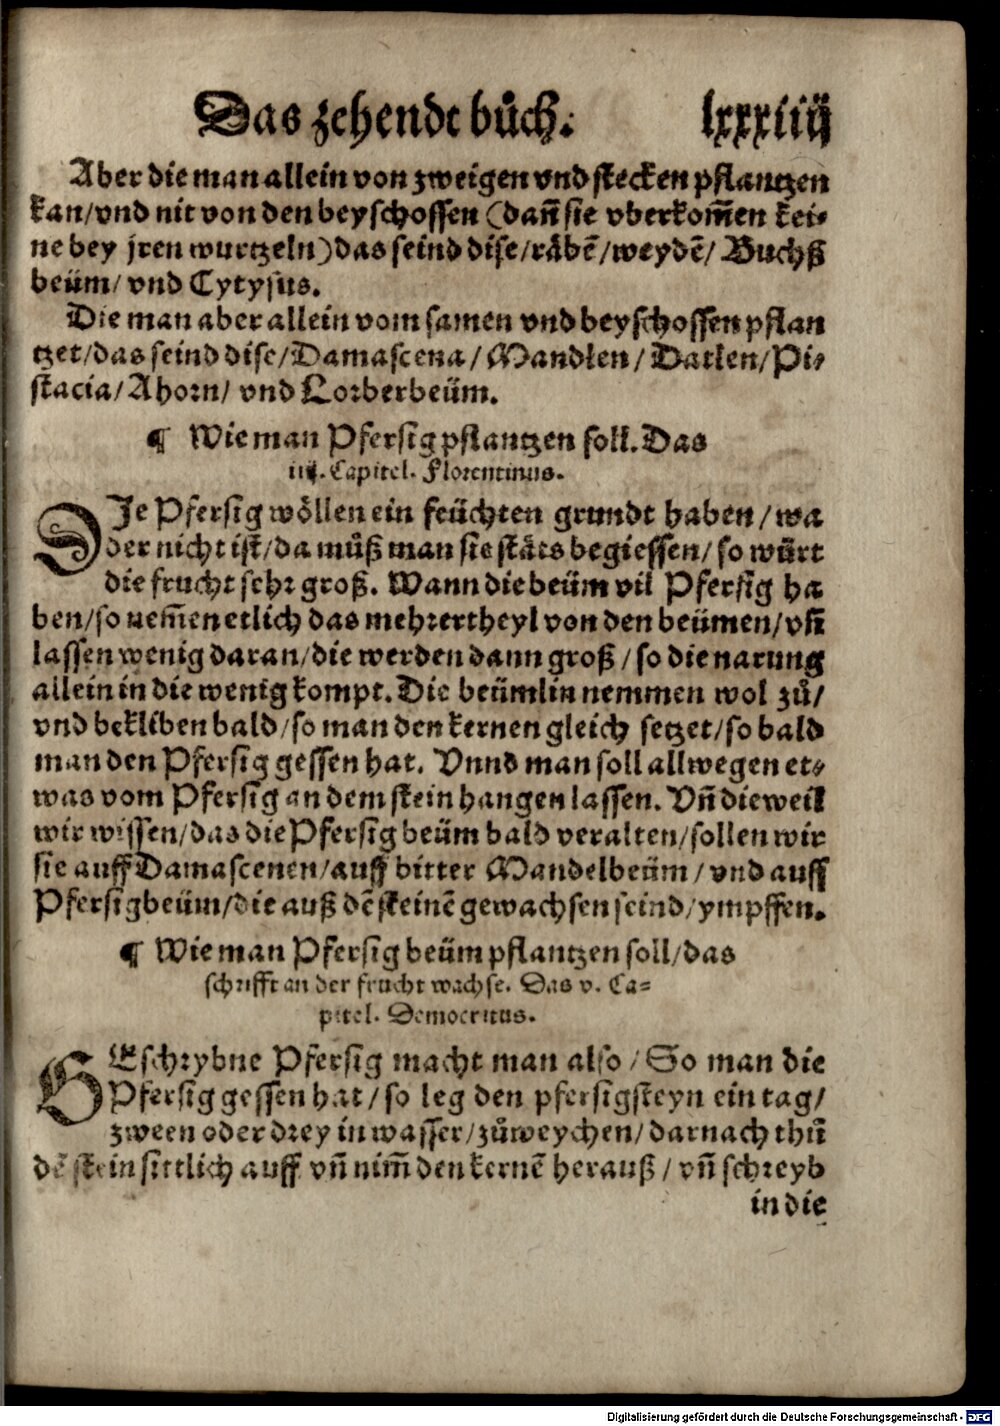 Das zehendt bůch. lxxxiiij
Aber die man allein von zweigen vnd stecken pflantzen
kan/vnd nit von den beyschossen (dañ sie vberkom̃en kei⸗
ne bey jren wurtzeln) das seind dise/räbẽ/weydẽ/ Buchß
beüm/ vnd Cytysus.
Die man aber allein vom samen vnd beyschossen pflan
tzet/das seind dise/Damascena/ Mandlen/ Datlen/Pi⸗
stacia/Ahorn/ vnd Lorberbeüm.
¶ Wie man Pfersig pflantzen soll. Das
iiij. Capitel. Florentinus.
DJe Pfersig wöllen ein feüchten grundt haben/wa
der nicht ist/da můß man sie stäts begiessen/ so würt
die frucht sehr groß. Wann die beüm vil Pfersig ha
ben/so nem̃en etlich das mehrertheyl von den beümen/vñ
lassen wenig daran/die werden dann groß/so die narung
allein in die wenig kompt. Die beümlin nemmen wol zů/
vnd bekliben bald/so man den kernen gleich setzet/so bald
man den Pfersig gessen hat. Vnnd man soll allwegen et⸗
was vom Pfersig an dem stein hangen lassen. Vñ dieweil
wir wissen/das die Pfersig beüm bald veralten/sollen wir
sie auff Damascenen/auff bitter Mandelbeüm/vnd auff
Pfersigbeüm/die auß dẽ steinẽ gewachsen seind/ympffen.
¶ Wie man Pfersig beüm pflantzen soll/das
schrifft an der frucht wachse. Das v. Ca⸗
pitel. Democritus.
GEschrybne Pfersig macht man also/So man die
Pfersig gessen hat/so leg den pfersigsteyn ein tag/
zween oder drey in wasser/zůweychen/darnach thů
dẽ stein sittlich auff vñ nim̃ den kernẽ herauß/vñ schreyb
in die
Digitalisierung gefördert durch die Deutsche Forschungsgemeinschaft - DFG